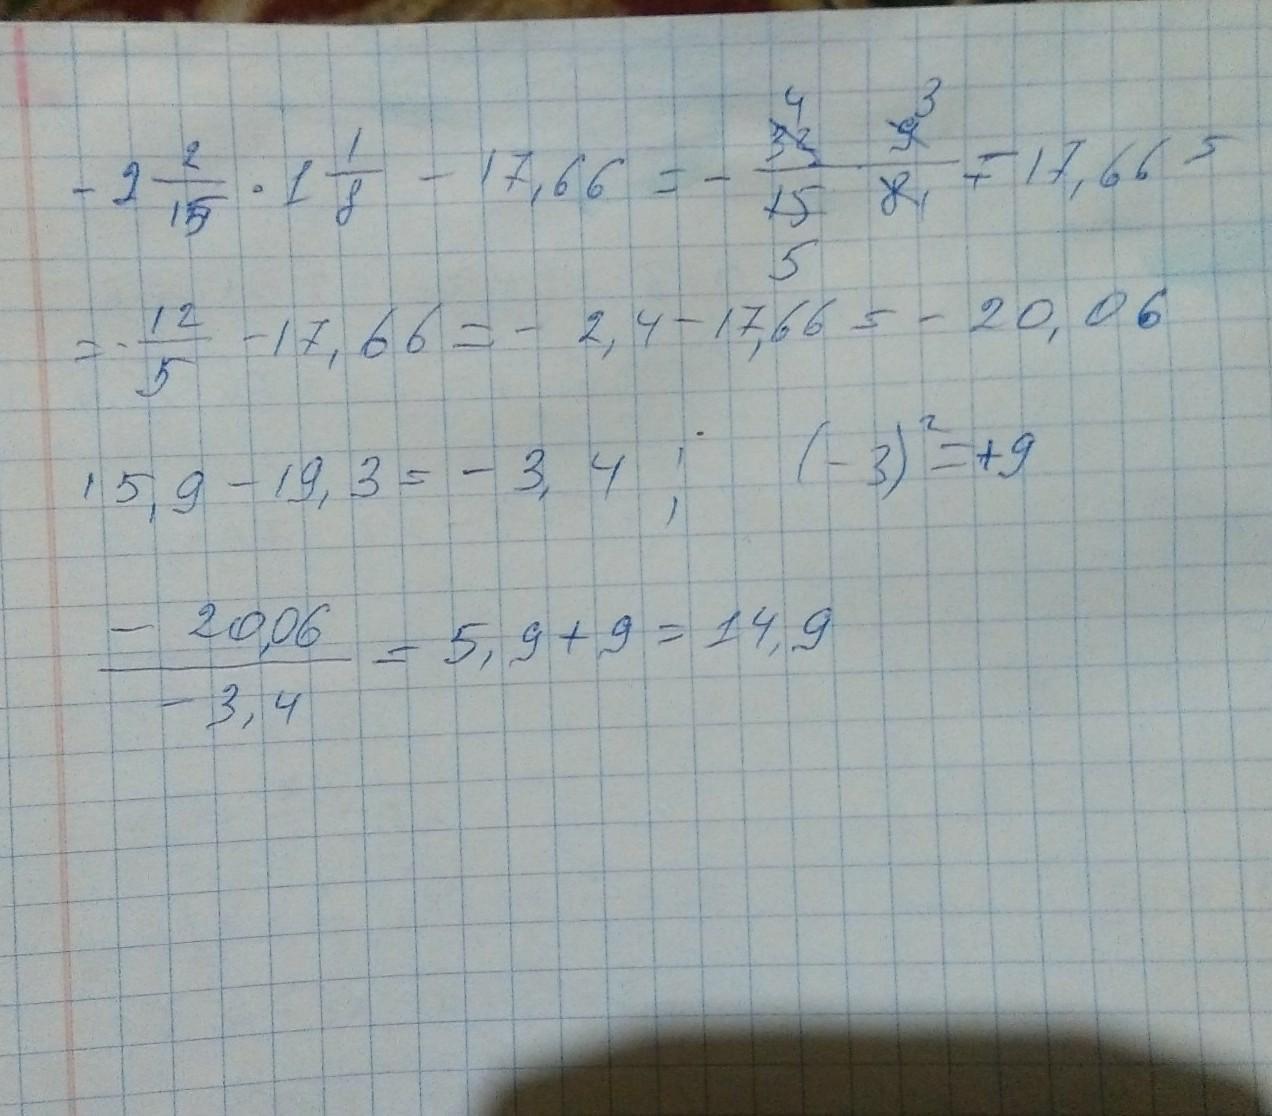 - 2 2/15 · 1 1/8 - 17,66 = - 32/15 · 9/8 - 17,66 =
= - 12/5 - 17,66 = - 2,4 - 17,66 = - 20,06
15,9 - 19,3 = - 3,4 ; (-3)² = +9
- 20,06 / - 3,4 = 5,9 + 9 = 14,9